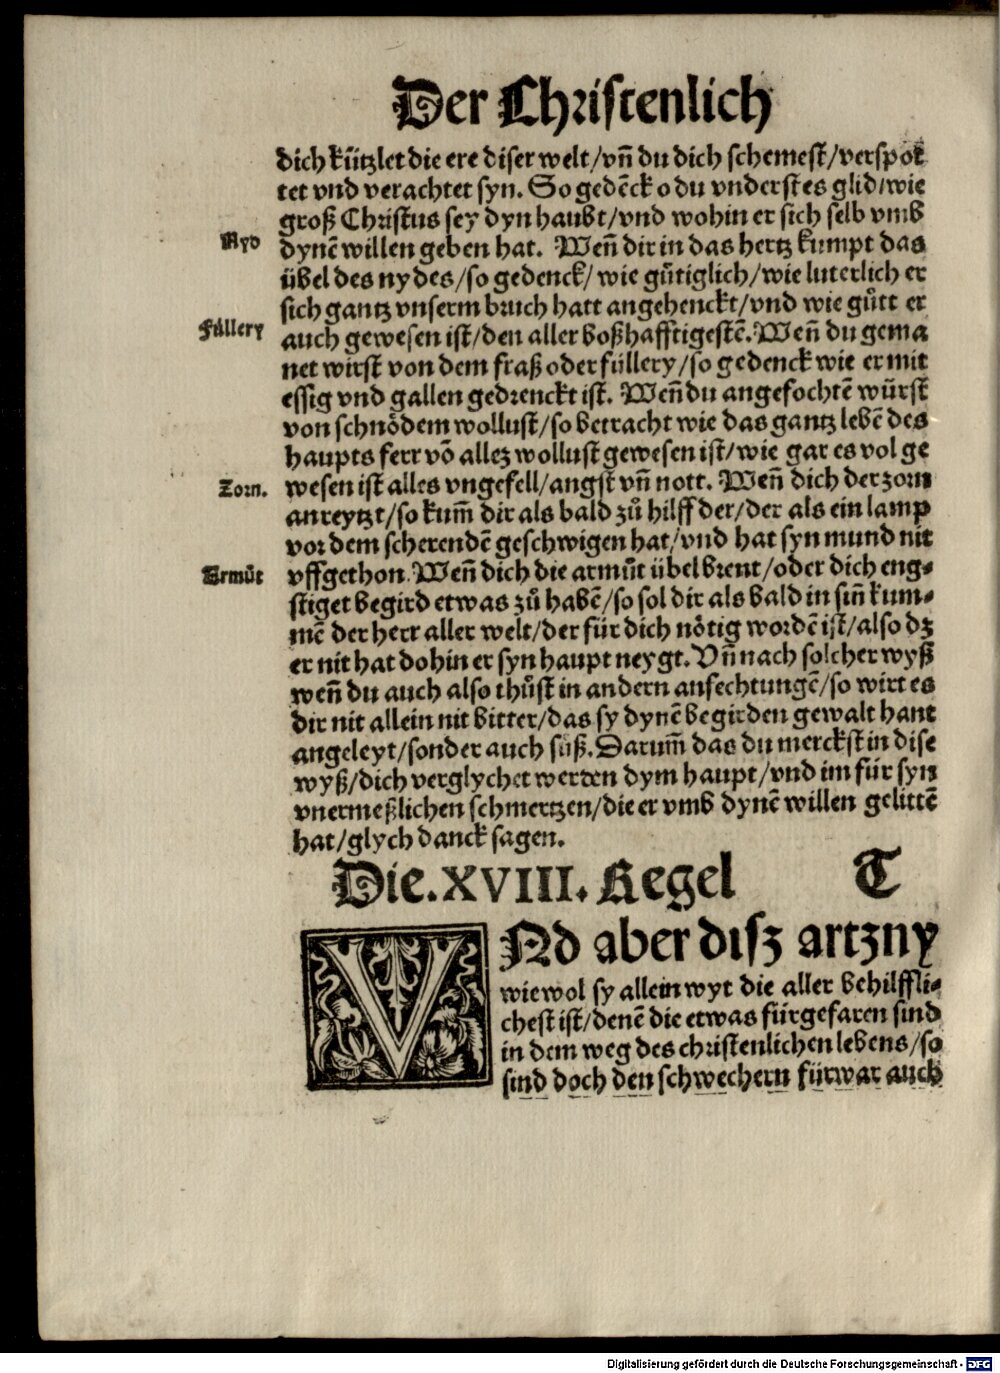 Der Christenlich
dich kützlet die ere diser welt/vñ du dich schemest/verspot
tet vnd verachtet syn. So gedẽck o du vnderstes glid/wie
groß Christus sey dyn haubt/vnd wohin er sich selb vmb
Nyd
dynẽ willen geben hat. Weñ dir in das hertz kumpt das
übel des nydes/so gedenck/wie gůtiglich/wie luterlich er
sich gantz vnserm bruch hatt angehenckt/vnd wie gůtt er
Füllery
auch gewesen ist/den aller boßhafftigestẽ. Weñ du gema
net wirst von dem fraß oder füllery/so gedenck wie er mit
essig vnd gallen gedrenckt ist. Weñ du angefochtẽ würst
von schnödem wollust/so betracht wie das gantz lebẽ des
haupts ferr võ allez wollust gewesen ist/wie gar es vol ge
Zorn.
wesen ist alles vngefell/angst vñ nott. Weñ dich der zorn
anreytzt/so kum̃ dir als bald zů hilff der/der als ein lamp
vor dem scherendẽ geschwigen hat/vnd hat syn mund nit
Armůt
vffgethon. Weñ dich die armůt übel brent/oder dich eng⸗
stiget begird etwas zů habẽ/so sol dir als bald in siñ kum⸗
mẽ der herr aller welt/der für dich nötig wordẽ ist/also dz
er nit hat dohin er syn haupt neygt. Vñ nach solcher wyß
weñ du auch also thůst in andern anfechtungẽ/so wirt es
dir nit allein nit bitter/das sy dynẽ begirden gewalt hant
angeleyt/sonder auch süß. Darum̃ das du merckst in dise
wyß/dich verglychet werden dym haupt/vnd im für syn
vnermeßlichen schmertzen/die er vmb dynẽ willen gelittẽ
hat/glych danck sagen.
Die.XVIII.Regel T
VNd aber disz artzny
wiewol sy allein wyt die aller behilffli⸗
chest ist/denẽ die etwas fürgefaren sind
in dem weg des christenlichen lebens/so
sind doch den schwechern fürwar auch
Digitalisierung gefördert durch die Deutsche Forschungsgemeinschaft - DFG